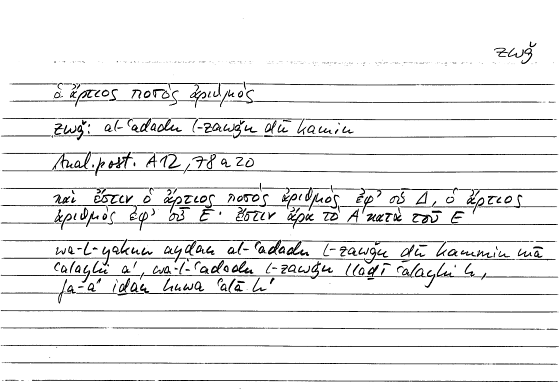 zwǧ
ὁ ἄρτιος ποσὸς ἀριθμός
zwǧ: al-ʿadadu l-zawǧu ḏū kamin
Anal. post. A 12, 78 a 20
καὶ ἔστιν ὁ ἄρτιος ποσὸς ἀριθμὸς ἐφ’ οὗ Δ, ὁ ἄρτιος
ἀριθμὸς ἐφ’ οὗ Ε· ἔστιν ἄρα τὸ Α κατὰ τοῦ Ε
wa-l-yakun ayḍan al-ʿadadu l-zawǧu ḏū kammin mā
ʿalayhi aʾ, wa-l-ʿadadu l-zawǧu llaḏī ʿalayhi h,
fa-aʾ iḏan huwa ʿalā hʾ